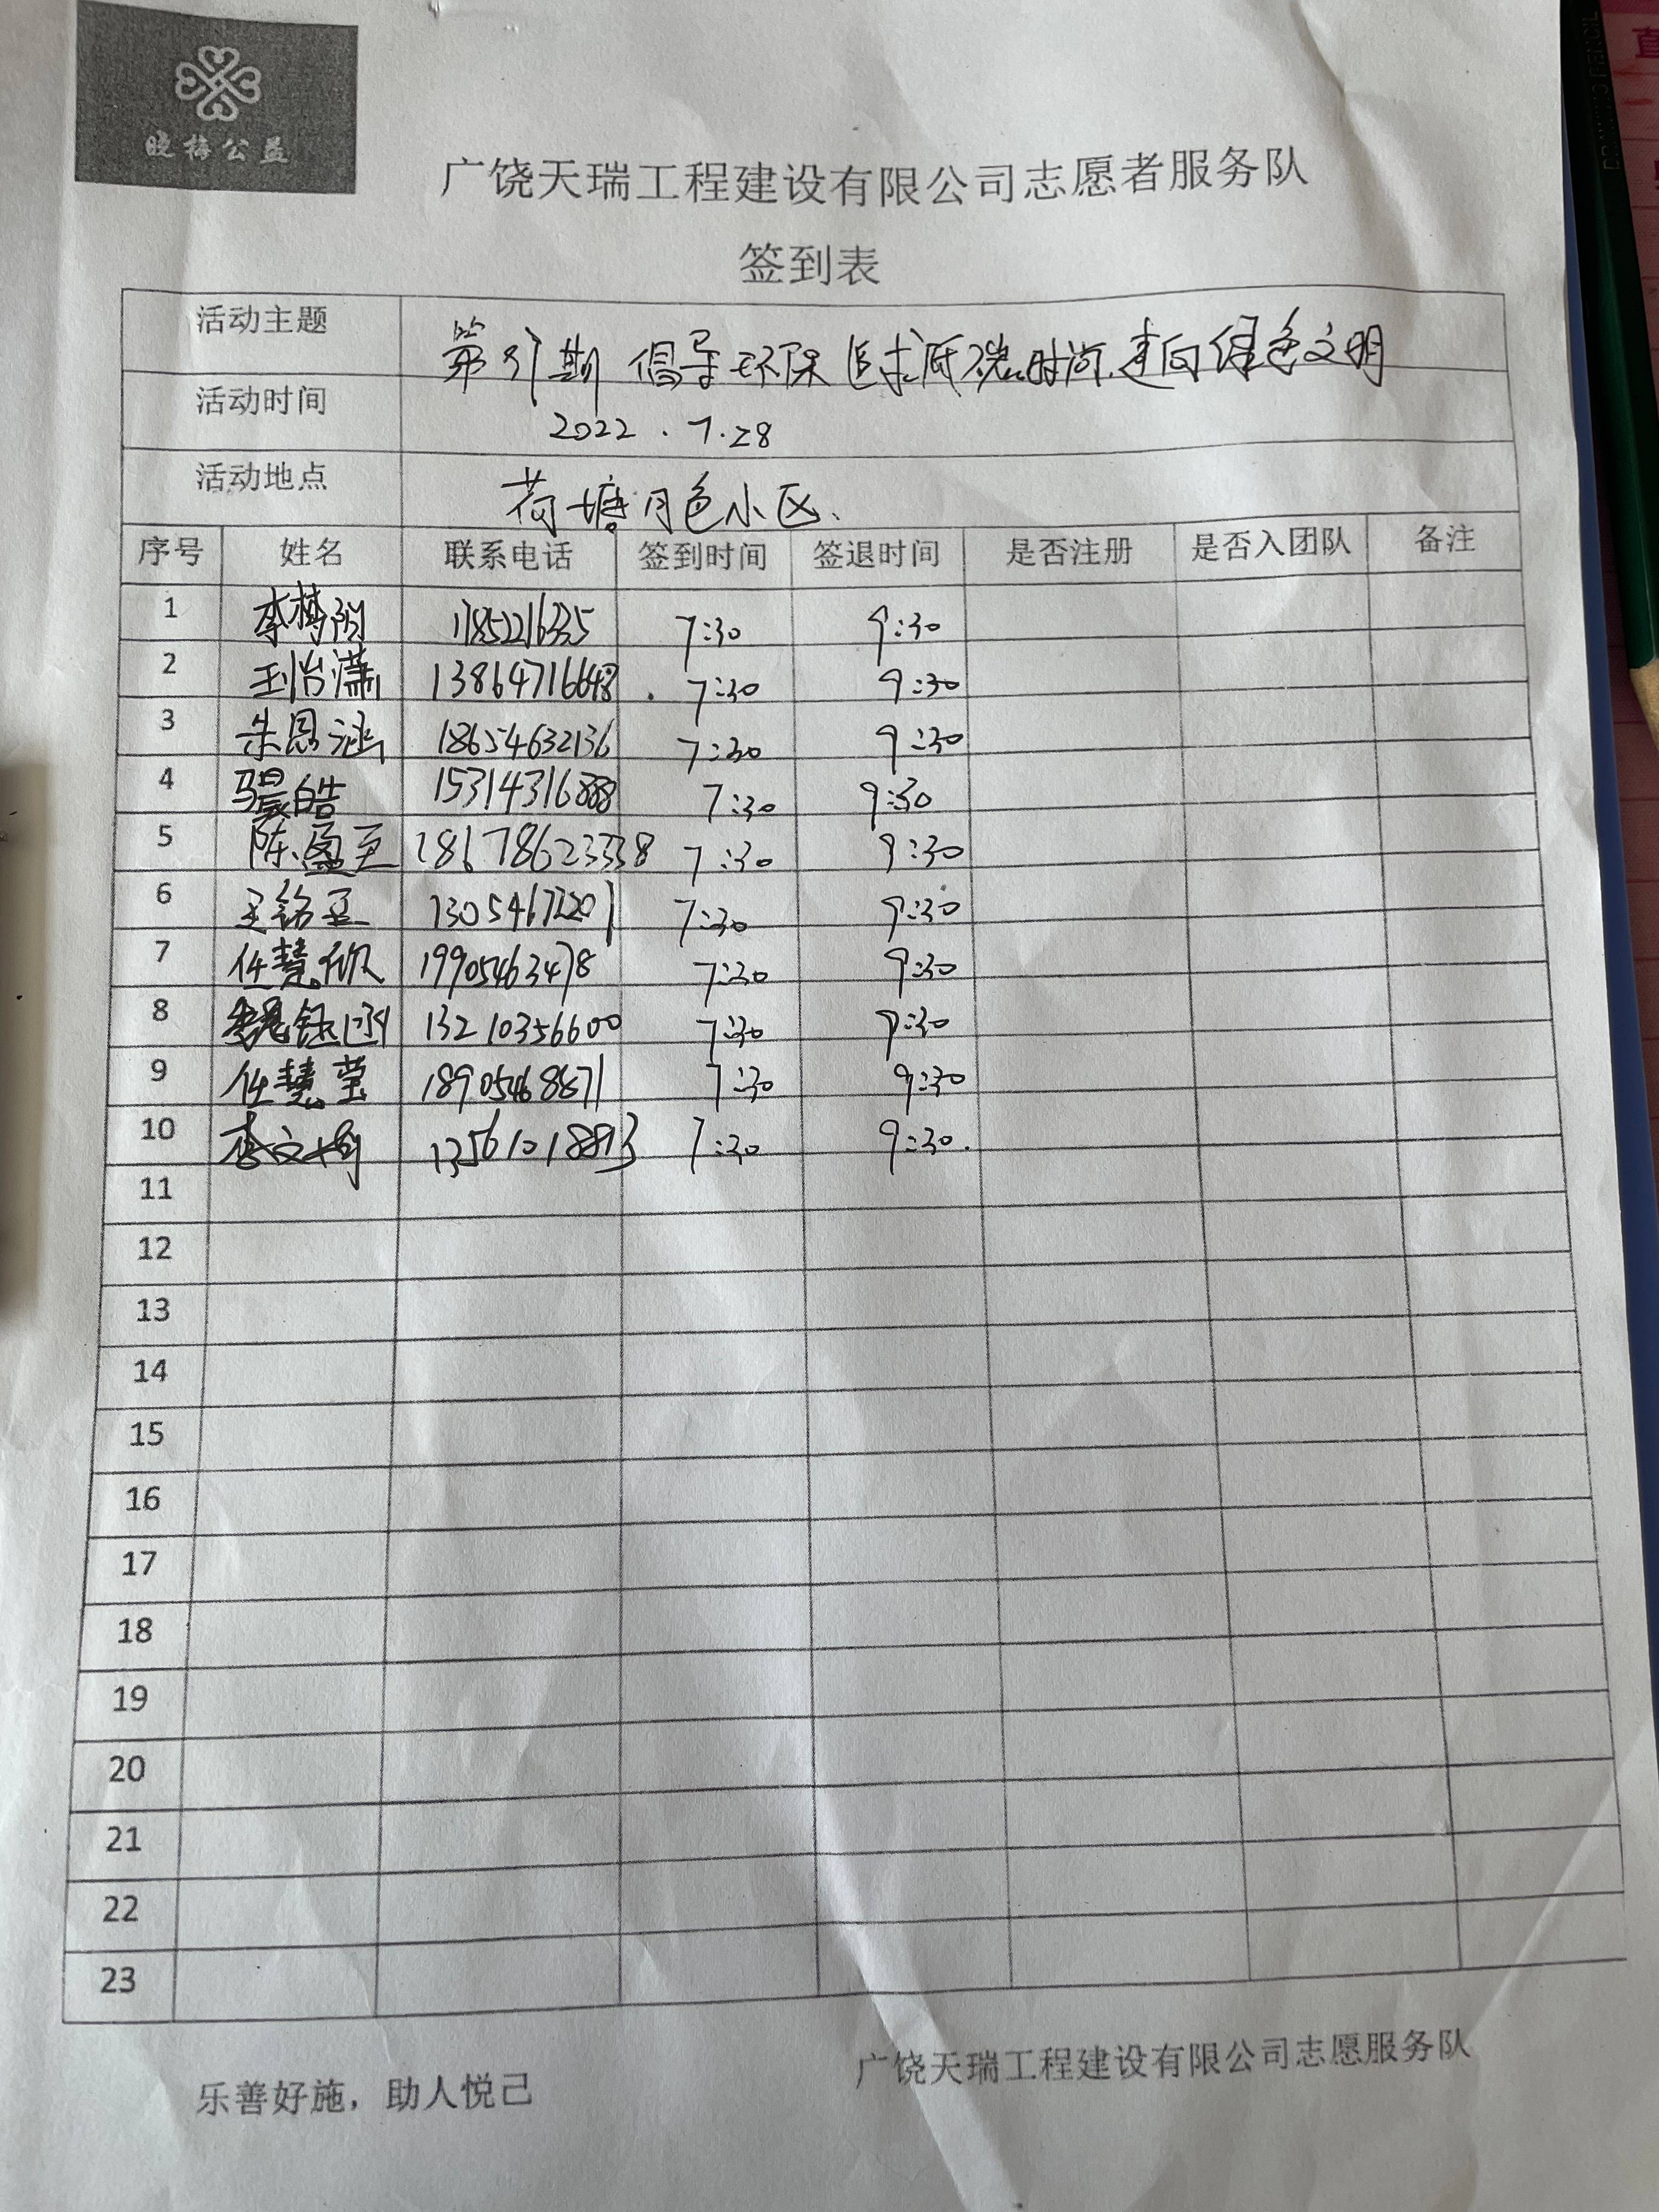 晓梅公益
广饶天瑞工程建设有限公司志愿者服务队
签到表
活动主题 第31期 倡导环保 追求低碳时尚.走向绿色文明
活动时间 2022.7.28
活动地点 荷塘月色小区.
序号 姓名 联系电话 签到时间 签退时间 是否注册 是否入团队 备注
1 李梦 7:30 9:30
2 王怡潇 13864716648 7:30 9:30
3 朱恩涵 18654632136 7:30 9:30
4 马晨皓 15314316888 7:30 9:30
5 陈盈至 18678623338 7:30 9:30
6 王铭 13054672201 7:30 9:30
7 任慧欣 19905463478 7:30 9:30
8 钰涵 13210356600 7:30 9:30
9 任慧莹 18905468671 7:30 9:30
10 李文 13561018893 7:30 9:30.
11
12
13
14
15
16
17
18
19
20
21
22
23
广饶天瑞工程建设有限公司志愿服务队
乐善好施，助人悦己